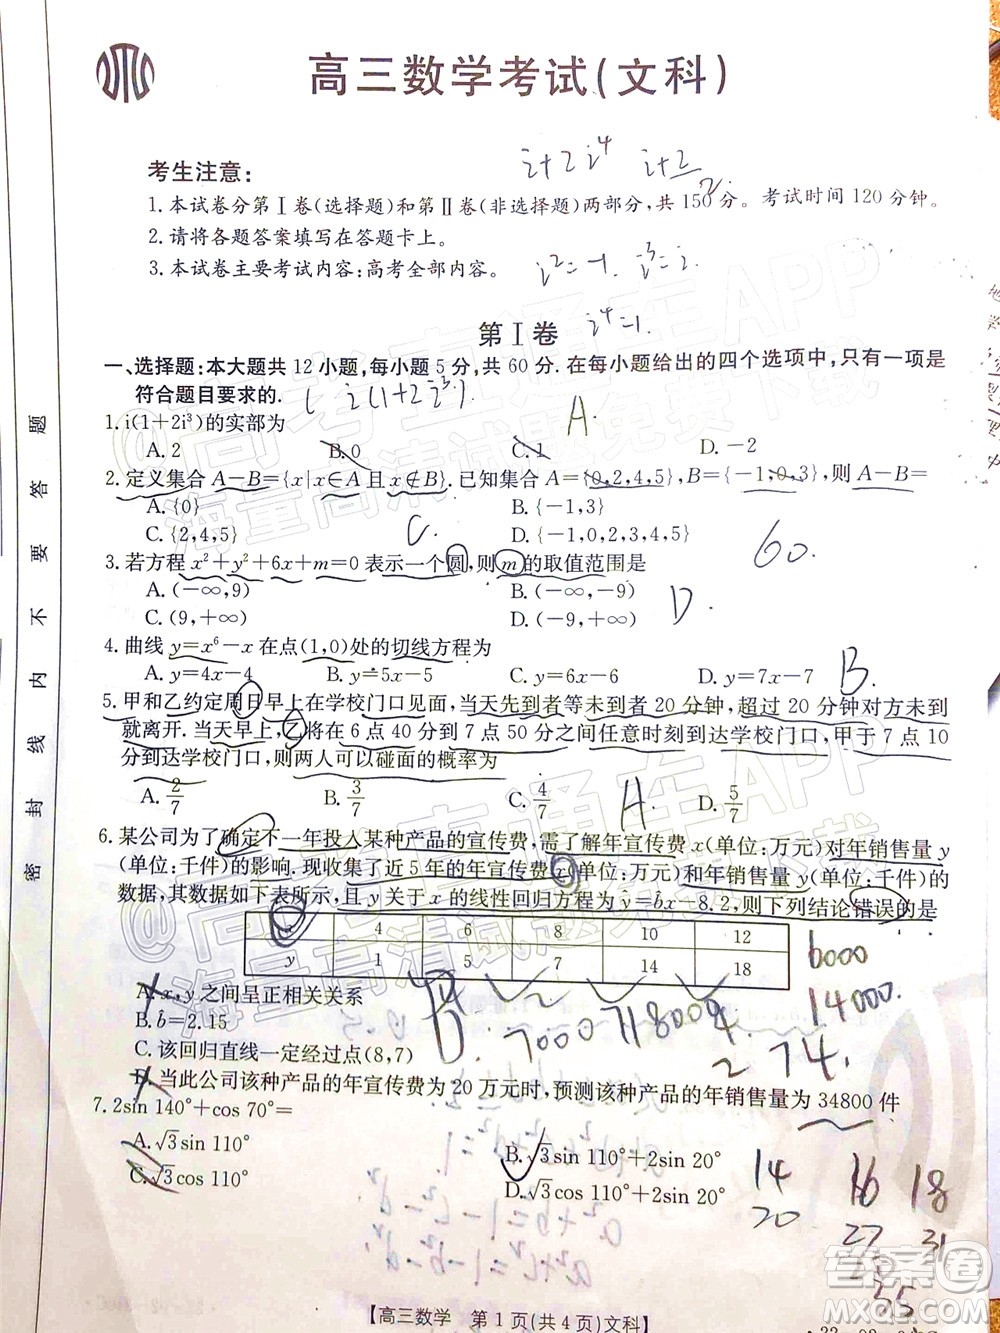 高三数学考试(文科)
i+2i⁴ i+2
考生注意:
1.本试卷分第Ⅰ卷(选择题)和第Ⅱ卷(非选择题)两部分,共150分。考试时间120分钟。
2.请将各题答案填写在答题卡上。
3.本试卷主要考试内容:高考全部内容。
i²=-1. i³=i.
i⁴=1.
第Ⅰ卷
一、选择题:本大题共12小题,每小题5分,共60分.在每小题给出的四个选项中,只有一项是
符合题目要求的.
i(1+2i³).
A.
1.i(1+2i³)的实部为
A.2 B.0 C.1 D.-2
2.定义集合A-B={x|x∈A且x∉B}.已知集合A={0,2,4,5},B={-1,0,3},则A-B=
A.{0} B.{-1,3}
C.{2,4,5} D.{-1,0,2,4,5}
C.
60.
3.若方程x²+y²+6x+m=0表示一个圆,则m的取值范围是
A.(-∞,9) B.(-∞,-9)
C.(9,+∞) D.(-9,+∞)
D.
4.曲线y=x⁶-x在点(1,0)处的切线方程为
A.y=4x-4 B.y=5x-5 C.y=6x-6 D.y=7x-7
B.
5.甲和乙约定周日早上在学校门口见面,当天先到者等未到者20分钟,超过20分钟对方未到
就离开.当天早上,乙将在6点40分到7点50分之间任意时刻到达学校门口,甲于7点10
分到达学校门口,则两人可以碰面的概率为
A.2/7 B.3/7 C.4/7 D.5/7
A.
6.某公司为了确定下一年投入某种产品的宣传费,需了解年宣传费x(单位:万元)对年销售量y
(单位:千件)的影响.现收集了近5年的年宣传费x(单位:万元)和年销售量y(单位:千件)的
数据,其数据如下表所示,且y关于x的线性回归方程为ŷ=b̂x-8.2,则下列结论错误的是
x 4 6 8 10 12
y 1 5 7 14 18
6000
14000.
A.x,y之间呈正相关关系
B.b̂=2.15
C.该回归直线一定经过点(8,7)
D.
7000
18000
74.
D.当此公司该种产品的年宣传费为20万元时,预测该种产品的年销售量为34800件
7.2sin 140°+cos 70°=
A.√3sin 110° B.√3sin 110°+2sin 20°
C.√3cos 110° D.√3cos 110°+2sin 20°
14 16 18
20 27 31
55
密封线内不要答题
【高三数学 第1页(共4页)文科】
答案圈
@高考直通车APP
海量高清试题免费下载